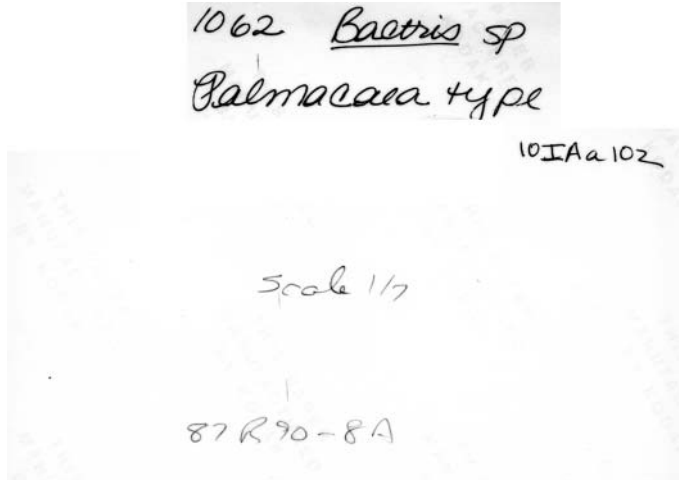 1062 Bactris sp
Palmacaea type
10IAa102
Scale 1/7
87R90-8A